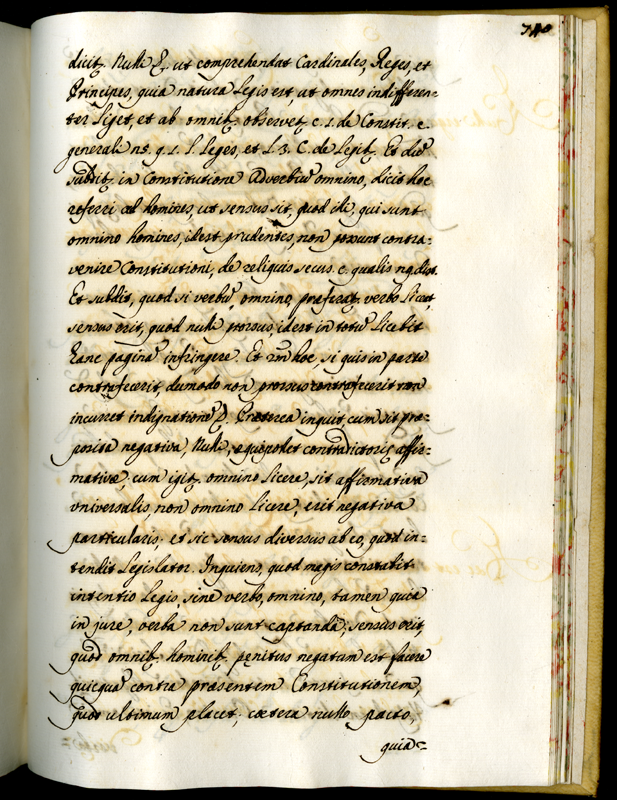 dicit; Nulli &. ut comprehendat Cardinales, Reges, et
Principes, quia natura legis est, ut omnes indifferen-
ter liget, et ab omnib; observet; c. 1. de Constit. c.
generali ns. q. 1. l. leges, et l. 3. C. de legib; Et
subdit; in Constitutione adverbiũ omnino, dicit hoc
referri ad homines, ut sensus sit, quod illi, qui sunt
omnino homines, idest prudentes, non possunt contra-
venire Constitutioni, de reliquis secus. c. qualis
Et subdit, quod si verbũ, omnino, praeferat; verbo liceat,
sensus erit, quod nulli prorsus idest in totũ licebit
hanc paginã infringere. Et hoc, si quis in parte
contrafecerit, dumodo non prorsus contrafecerit non
incurret indignationẽ D. Praeterea inquit, cum sit prae-
posita negativa, Nulli, equipollet contradictoriae affir-
mativae, cum igit; omnino licere, sit affirmativa
vniversalis, non omnino licere, erit negativa
particularis; et sic sensus diversus ab eo, quod in-
tendit legislator. Inquiens, quod magis constabit
intentio legis, sine verbo, omnino, tamen quia
in jure, verba non sunt captanda, sensus erit,
quod omnib; hominib; penitus negatum est facere
quicquã contra praesentem Constitutionem,
quod ultimum placet; caetera nullo pacto,
quia-